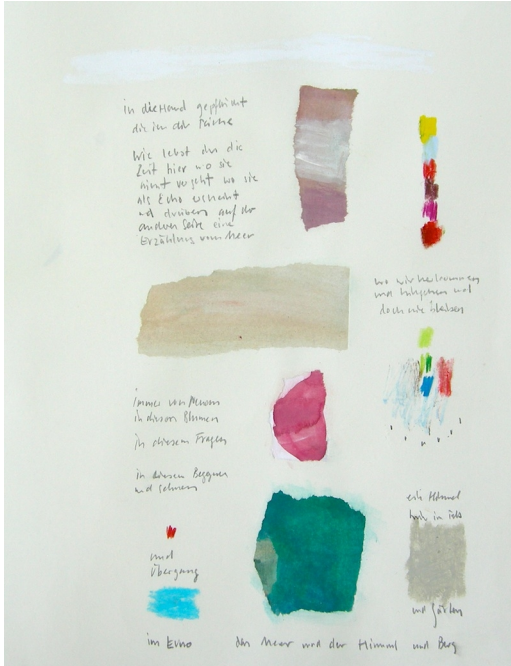 in die Hand
die in der
Wie lebst du die
Zeit hier wo sie
nicht vergeht wo sie
als Echo
und drüben auf der
anderen Seite eine
Erzählung vom Meer
wo wir herkommen
und hingehen und
doch nie bleiben
immer von Neuem
in diesen Blumen
in diesem Fragen
in diesem Begegnen
und Sehnen
Himmel
und
Übergang
und Gärten
im Echo
das Meer und der Himmel und Berg